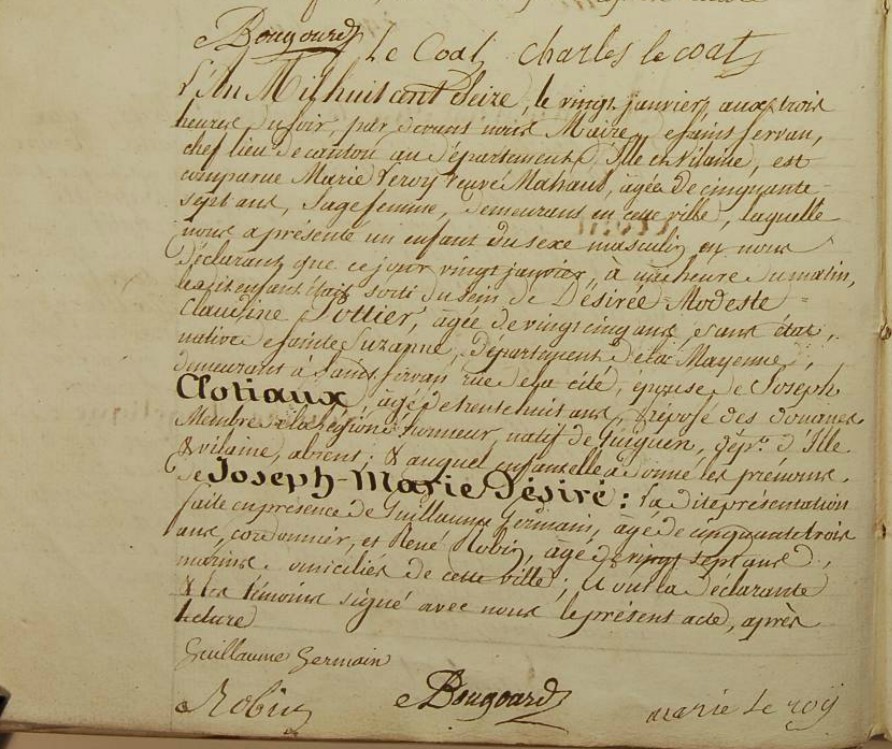 Bougourd Le Coat Charles le coat
L'An Mil huit cent Seize, le vingt janvier, aux trois
heures du soir, par devant nous Maire de Saint Servan,
chef lieu de canton au Département d'Ille et Vilaine, est
comparue Marie Leroy veuve Mahaud, agée de cinquante
sept ans, Sage femme, demeurant en cette ville, laquelle
nous a présenté un enfant du sexe masculin en nous
déclarant que ce jour vingt janvier, à une heure du matin,
ledit enfant était sorti du sein de Désirée = Modeste =
Claudine Pottier, agée de vingt cinq ans, sans état,
native de Sainte Suzanne, Département de la Mayenne,
demeurant à Saint Servan rue de la cité, épouse de Joseph
Clotiaux, agé de trente huit ans, Préposé des douanes
Membre de la légion d'honneur, natif de Guiguen, dépt. d'Ille
& vilaine, absent; & auquel enfant elle a donné les prénoms
de Joseph-Marie Désiré: la dite présentation
faite en présence de Guillaume Germain, agé de cinquante trois
ans, cordonnier, et René Robin, agé de vingt sept ans,
marins. domiciliés de cette ville; & ont la déclarante
& les témoins signé avec nous le présent acte, après
lecture
Guillaume Germain
Robin Bougourd marie Le roy